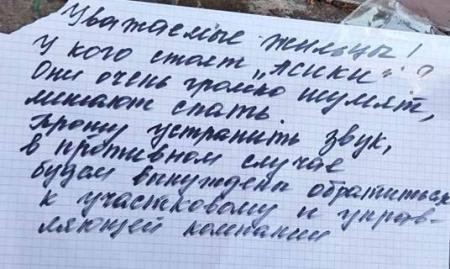 Уважаемые жильцы!
У кого стоят "Асики"?
Они очень громко шумят,
мешают спать
Прошу устранить звук,
в противном случае
будем вынуждены обратиться
к участковому и управ-
ляющей компании